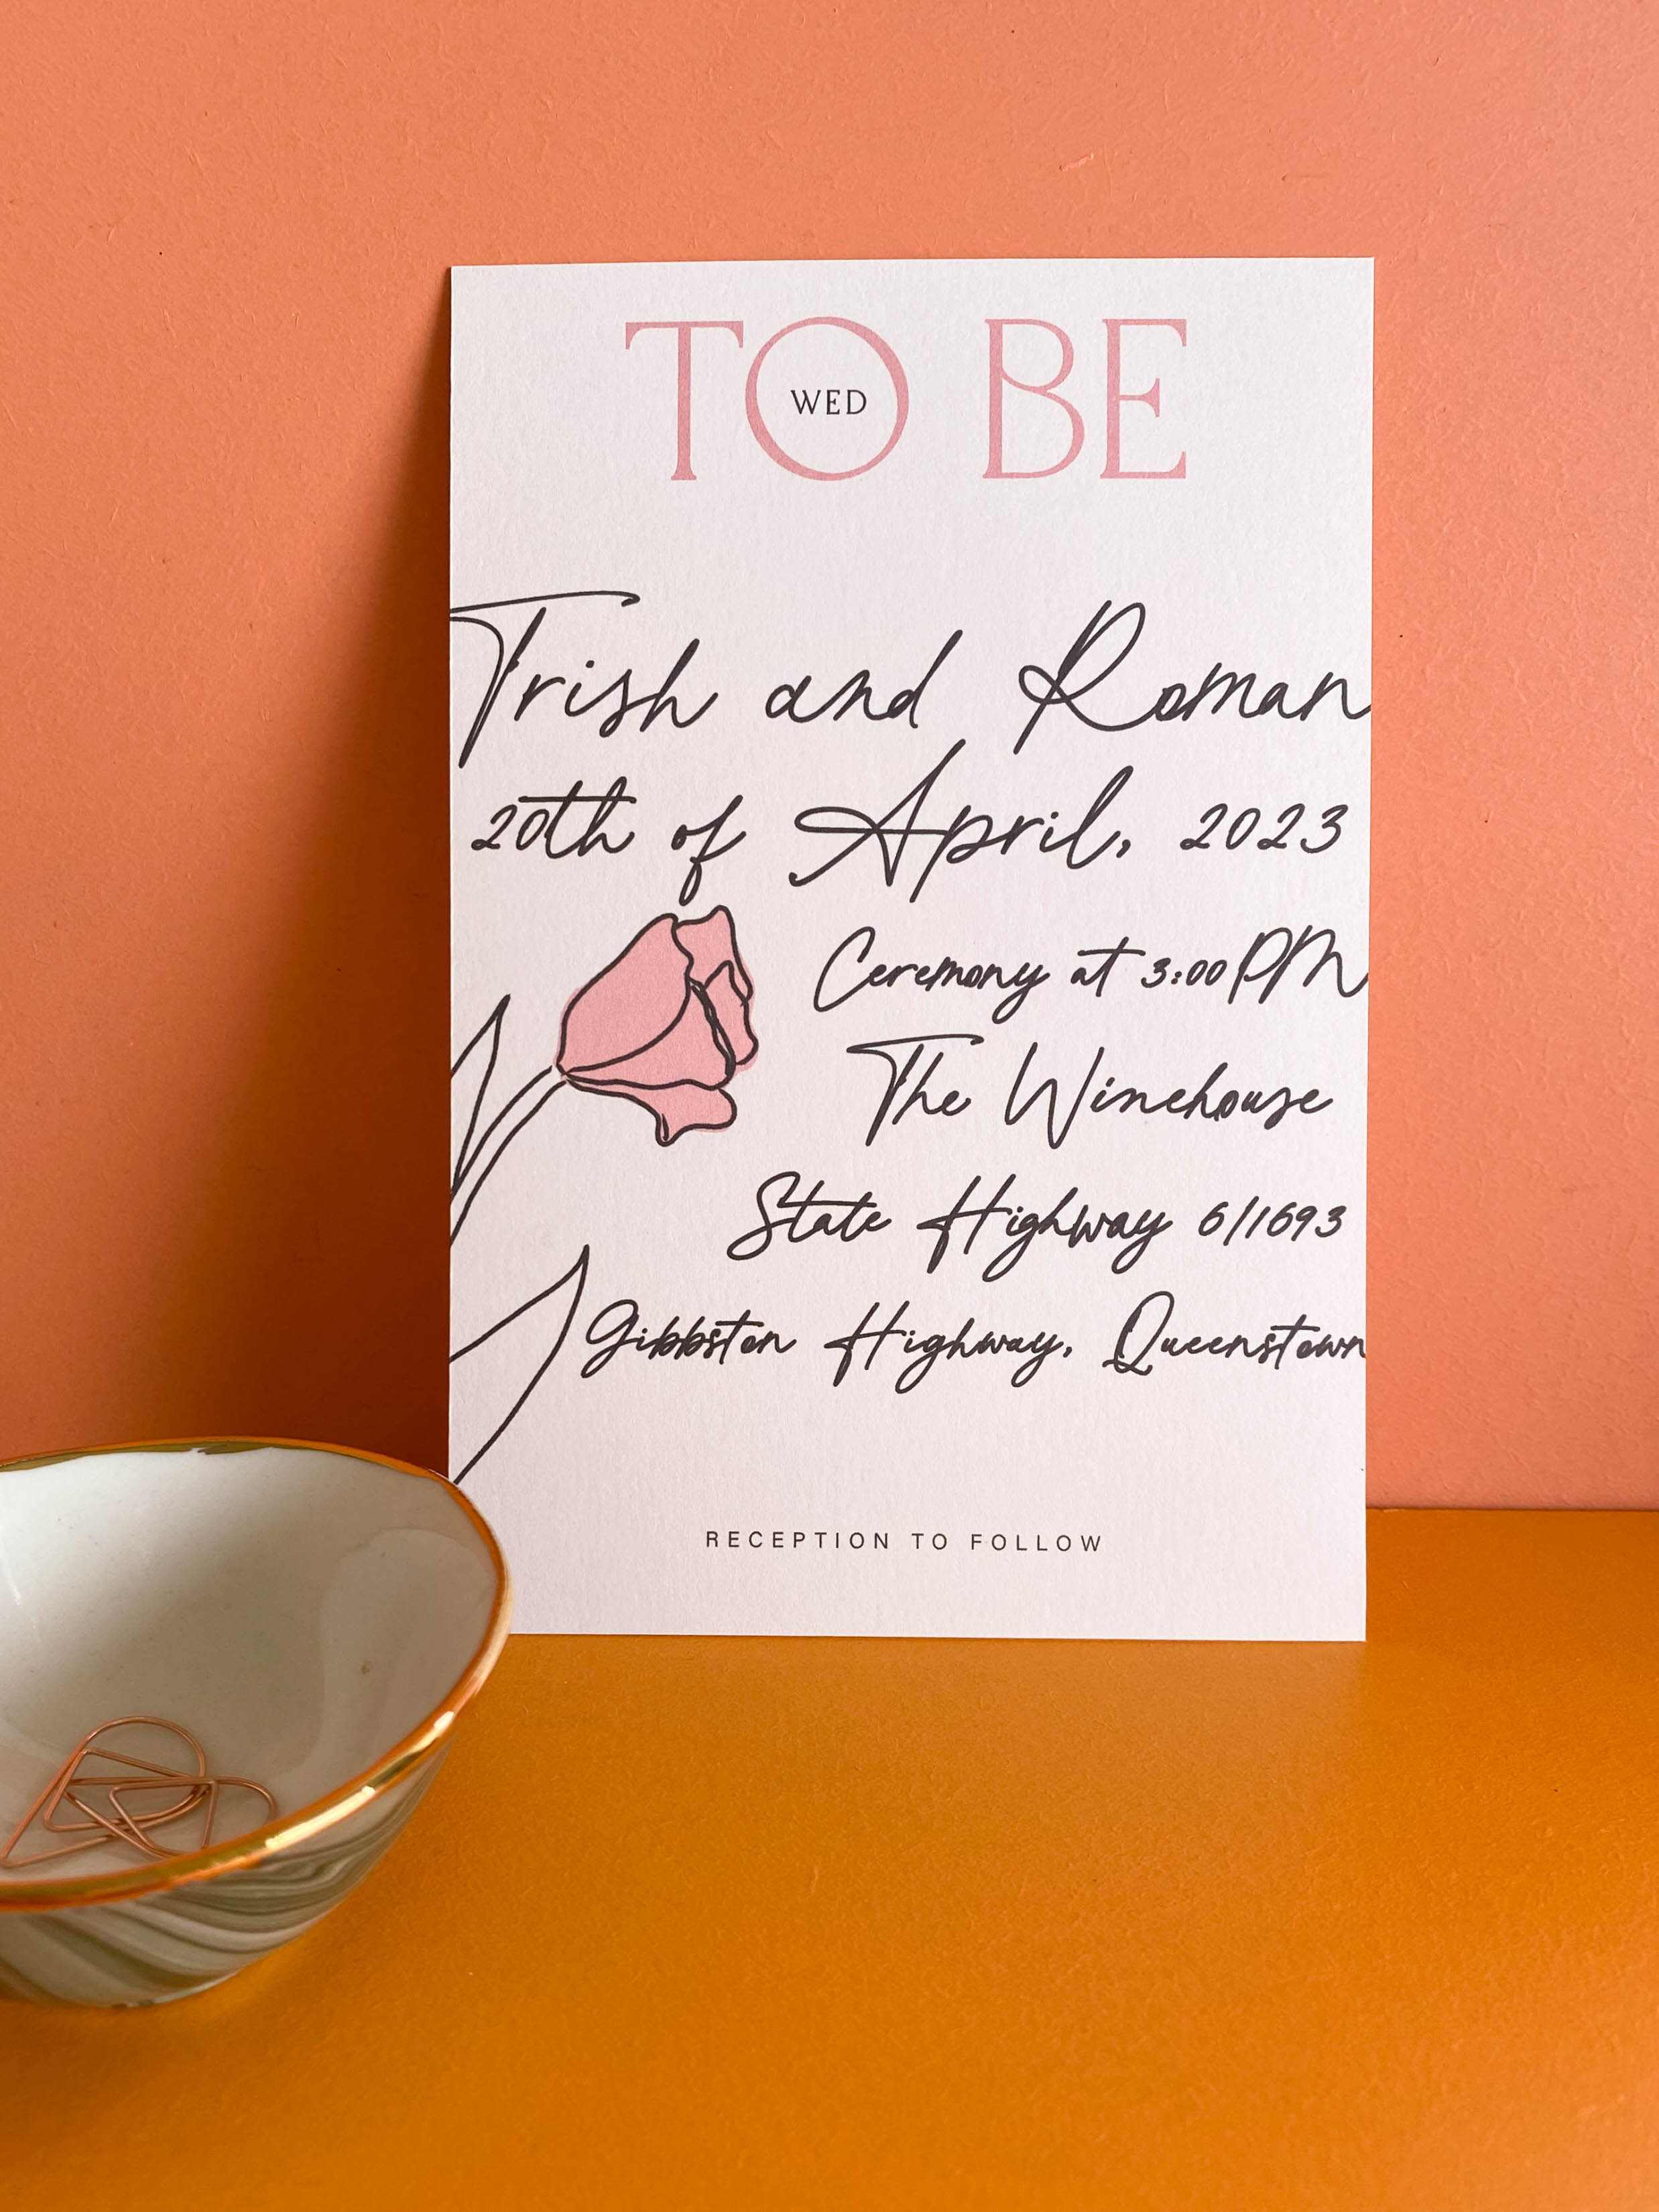 TO BE
WED
Trish and Roman
20th of April, 2023
Ceremony at 3:00PM
The Winehouse
State Highway 6/1693
Gibbston Highway, Queenstown
RECEPTION TO FOLLOW